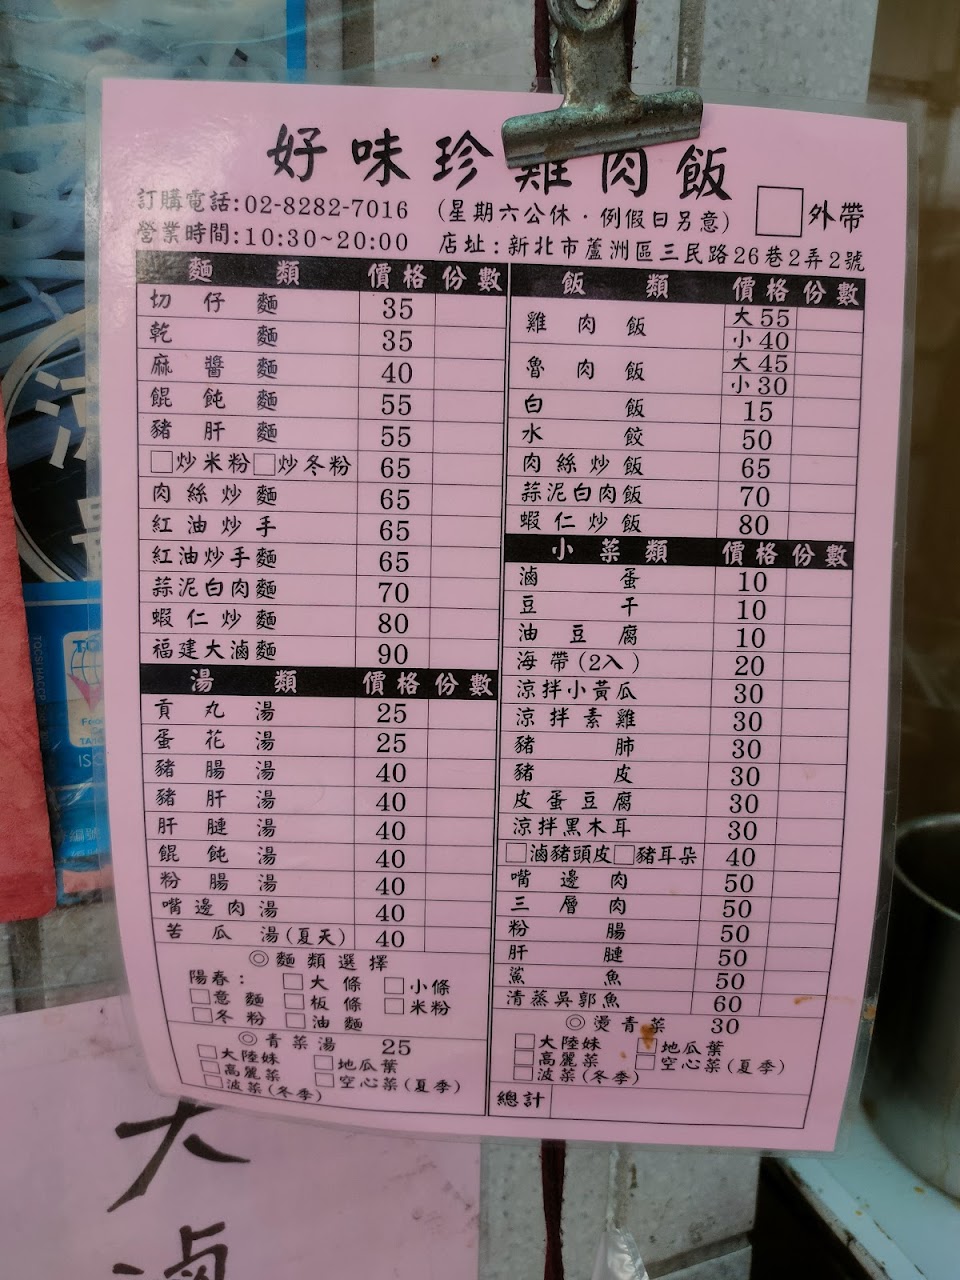 好味珍雞肉飯
訂購電話:02-8282-7016 (星期六公休·例假日另意) □外帶
營業時間:10:30~20:00 店址:新北市蘆洲區三民路26巷2弄2號
麵類 價格 份數
切仔麵 35
乾麵 35
麻醬麵 40
餛飩麵 55
豬肝麵 55
□炒米粉□炒冬粉 65
肉絲炒麵 65
紅油炒手 65
紅油炒手麵 65
蒜泥白肉麵 70
蝦仁炒麵 80
福建大滷麵 90
湯類 價格 份數
貢丸湯 25
蛋花湯 25
豬腸湯 40
豬肝湯 40
肝腱湯 40
餛飩湯 40
粉腸湯 40
嘴邊肉湯 40
苦瓜湯(夏天) 40
◎麵類選擇
陽春: □大條 □小條
□意麵 □板條 □米粉
□冬粉 □油麵
◎青菜湯 25
□大陸妹 □地瓜葉
□高麗菜 □空心菜(夏季)
□波菜(冬季)
飯類 價格 份數
雞肉飯 大55
小40
魯肉飯 大45
小30
白飯 15
水餃 50
肉絲炒飯 65
蒜泥白肉飯 70
蝦仁炒飯 80
小菜類 價格 份數
滷蛋 10
豆干 10
油豆腐 10
海帶(2入) 20
涼拌小黃瓜 30
涼拌素雞 30
豬肺 30
豬皮 30
皮蛋豆腐 30
涼拌黑木耳 30
□滷豬頭皮□豬耳朵 40
嘴邊肉 50
三層肉 50
粉腸 50
肝腱 50
鯊魚 50
清蒸吳郭魚 60
◎燙青菜 30
□大陸妹 □地瓜葉
□高麗菜 □空心菜(夏季)
□波菜(冬季)
總計
大
滷